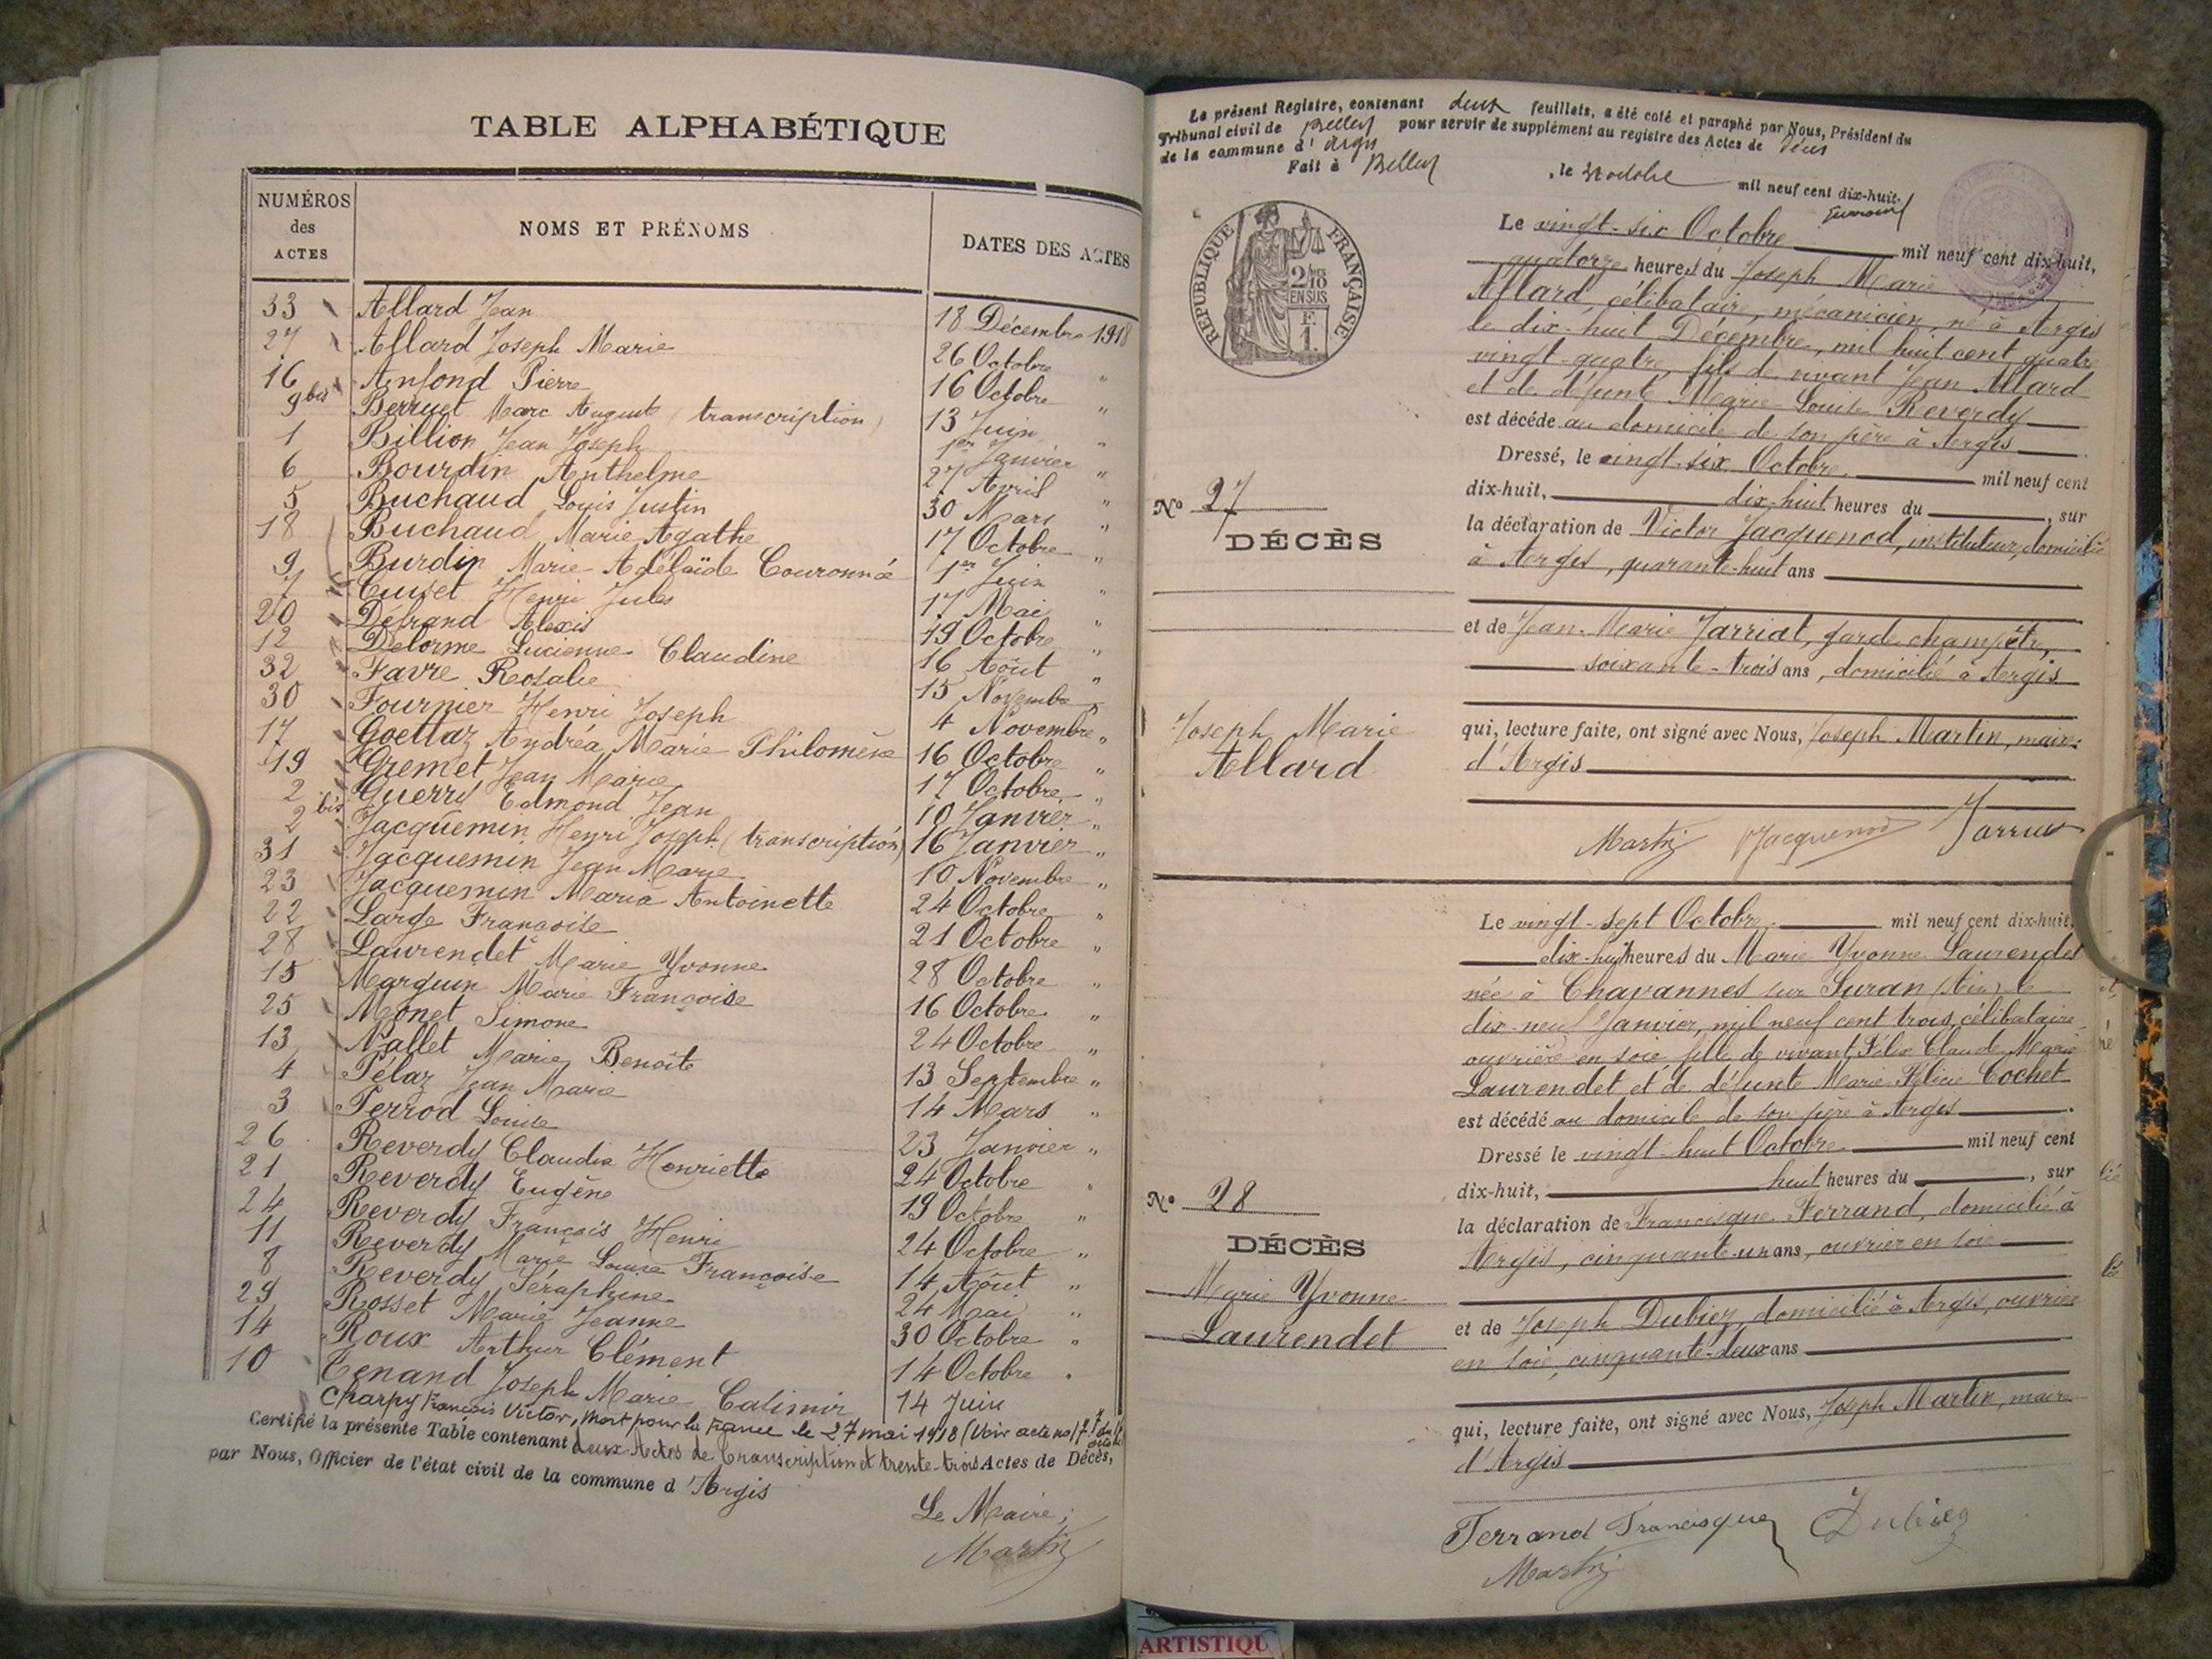 TABLE ALPHABÉTIQUE
NUMÉROS des ACTES
NOMS ET PRÉNOMS
DATES DES ACTES
33 Allard Jean 18 Décembre 1918
27 Allard Joseph Marie 26 Octobre "
16 Anfond Pierre 16 Octobre "
9 bis Berruet Marc Auguste (transcription) 13 Juin "
1 Billion Jean Joseph 1er Janvier "
6 Bourdin Anthelme 27 Avril "
5 Buchaud Louis Justin 30 Mars "
18 Buchaud Marie Agathe 17 Octobre "
9 Burdin Marie Adélaïde Couronnée 1er Juin "
7 Cuiset Henri Jules 17 Mai "
20 Défrand Alexis 19 Octobre "
12 Delorme Lucienne Claudine 16 Août "
32 Favre Rosalie 15 Novembre "
30 Fournier Henri Joseph 4 Novembre "
17 Goettaz Andréa Marie Philomène 16 Octobre "
19 Gremet Jean Marie 17 Octobre "
2 Guerry Edmond Jean 10 Janvier "
2 bis Jacquemin Henri Joseph (transcription) 16 Janvier "
31 Jacquemin Jean Marie 10 Novembre "
23 Jacquemin Maria Antoinette 24 Octobre "
22 Large Françoise 21 Octobre "
28 Laurendet Marie Yvonne 28 Octobre "
15 Marguin Marie Françoise 16 Octobre "
25 Monet Simone 24 Octobre "
13 Nallet Marie Benoîte 13 Septembre "
4 Pélaz Jean Marie 14 Mars "
3 Perrod Louise 23 Janvier "
26 Reverdy Claudia Henriette 24 Octobre "
21 Reverdy Eugène 19 Octobre "
24 Reverdy François Henri 24 Octobre "
11 Reverdy Marie Louise Françoise 14 Août "
8 Reverdy Séraphine 24 Mai "
29 Rosset Marie Jeanne 30 Octobre "
14 Roux Arthur Clément 14 Octobre "
10 Tenand Joseph Marie Casimir 14 Juin
Charpy François Victor, Mort pour la France le 27 mai 1918 (Voir acte no
Certifié la présente Table contenant deux Actes de Transcription et trente-trois Actes de Décès,
par Nous, Officier de l'état civil de la commune d'Argis
Le Maire,
Martin
Le présent Registre, contenant deux feuillets, a été coté et paraphé par Nous, Président du
Tribunal civil de Belley pour servir de supplément au registre des Actes de Décès
de la commune d'Argis
Fait à Belley, le 31 octobre mil neuf cent dix-huit.
RÉPUBLIQUE FRANÇAISE
2/10 EN SUS
F. 1.
Le vingt-six Octobre mil neuf cent dix-huit,
quatorze heures du Joseph Marie
Allard, célibataire, mécanicien, né à Argis
le dix-huit Décembre, mil huit cent quatre
vingt-quatre, fils de vivant Jean Allard
et de défunte Marie-Louise Reverdy
est décédé au domicile de son père à Argis
Dressé, le vingt-six Octobre mil neuf cent
dix-huit, dix-huit heures du, sur
la déclaration de Victor Jacquenod, instituteur, domicilié
à Argis, quarante-huit ans
et de Jean-Marie Jarriat, garde champêtre,
soixante-trois ans, domicilié à Argis
qui, lecture faite, ont signé avec Nous, Joseph Martin, maire
d'Argis
No 27
DÉCÈS
Joseph Marie
Allard
Martin Jacquenod Jarriat
Le vingt-sept Octobre mil neuf cent dix-huit,
dix-huit heures du Marie Yvonne Laurendet
née à Chavannes sur Suran (Ain) le
dix-neuf Janvier, mil neuf cent trois, célibataire
ouvrière en soie fille de vivant Félix Claude Marie
Laurendet et de défunte Marie Félicie Cochet
est décédé au domicile de son père à Argis.
Dressé le vingt-huit Octobre mil neuf cent
dix-huit, huit heures du, sur
la déclaration de Francisque Ferrand, domicilié à
Argis, cinquante-un ans, ouvrier en soie
et de Joseph Dubiez, domicilié à Argis, ouvrier
en soie, cinquante-deux ans
qui, lecture faite, ont signé avec Nous, Joseph Martin, maire
d'Argis
No 28
DÉCÈS
Marie Yvonne
Laurendet
Ferrand Francisque Dubiez
Martin
ARTISTIQU